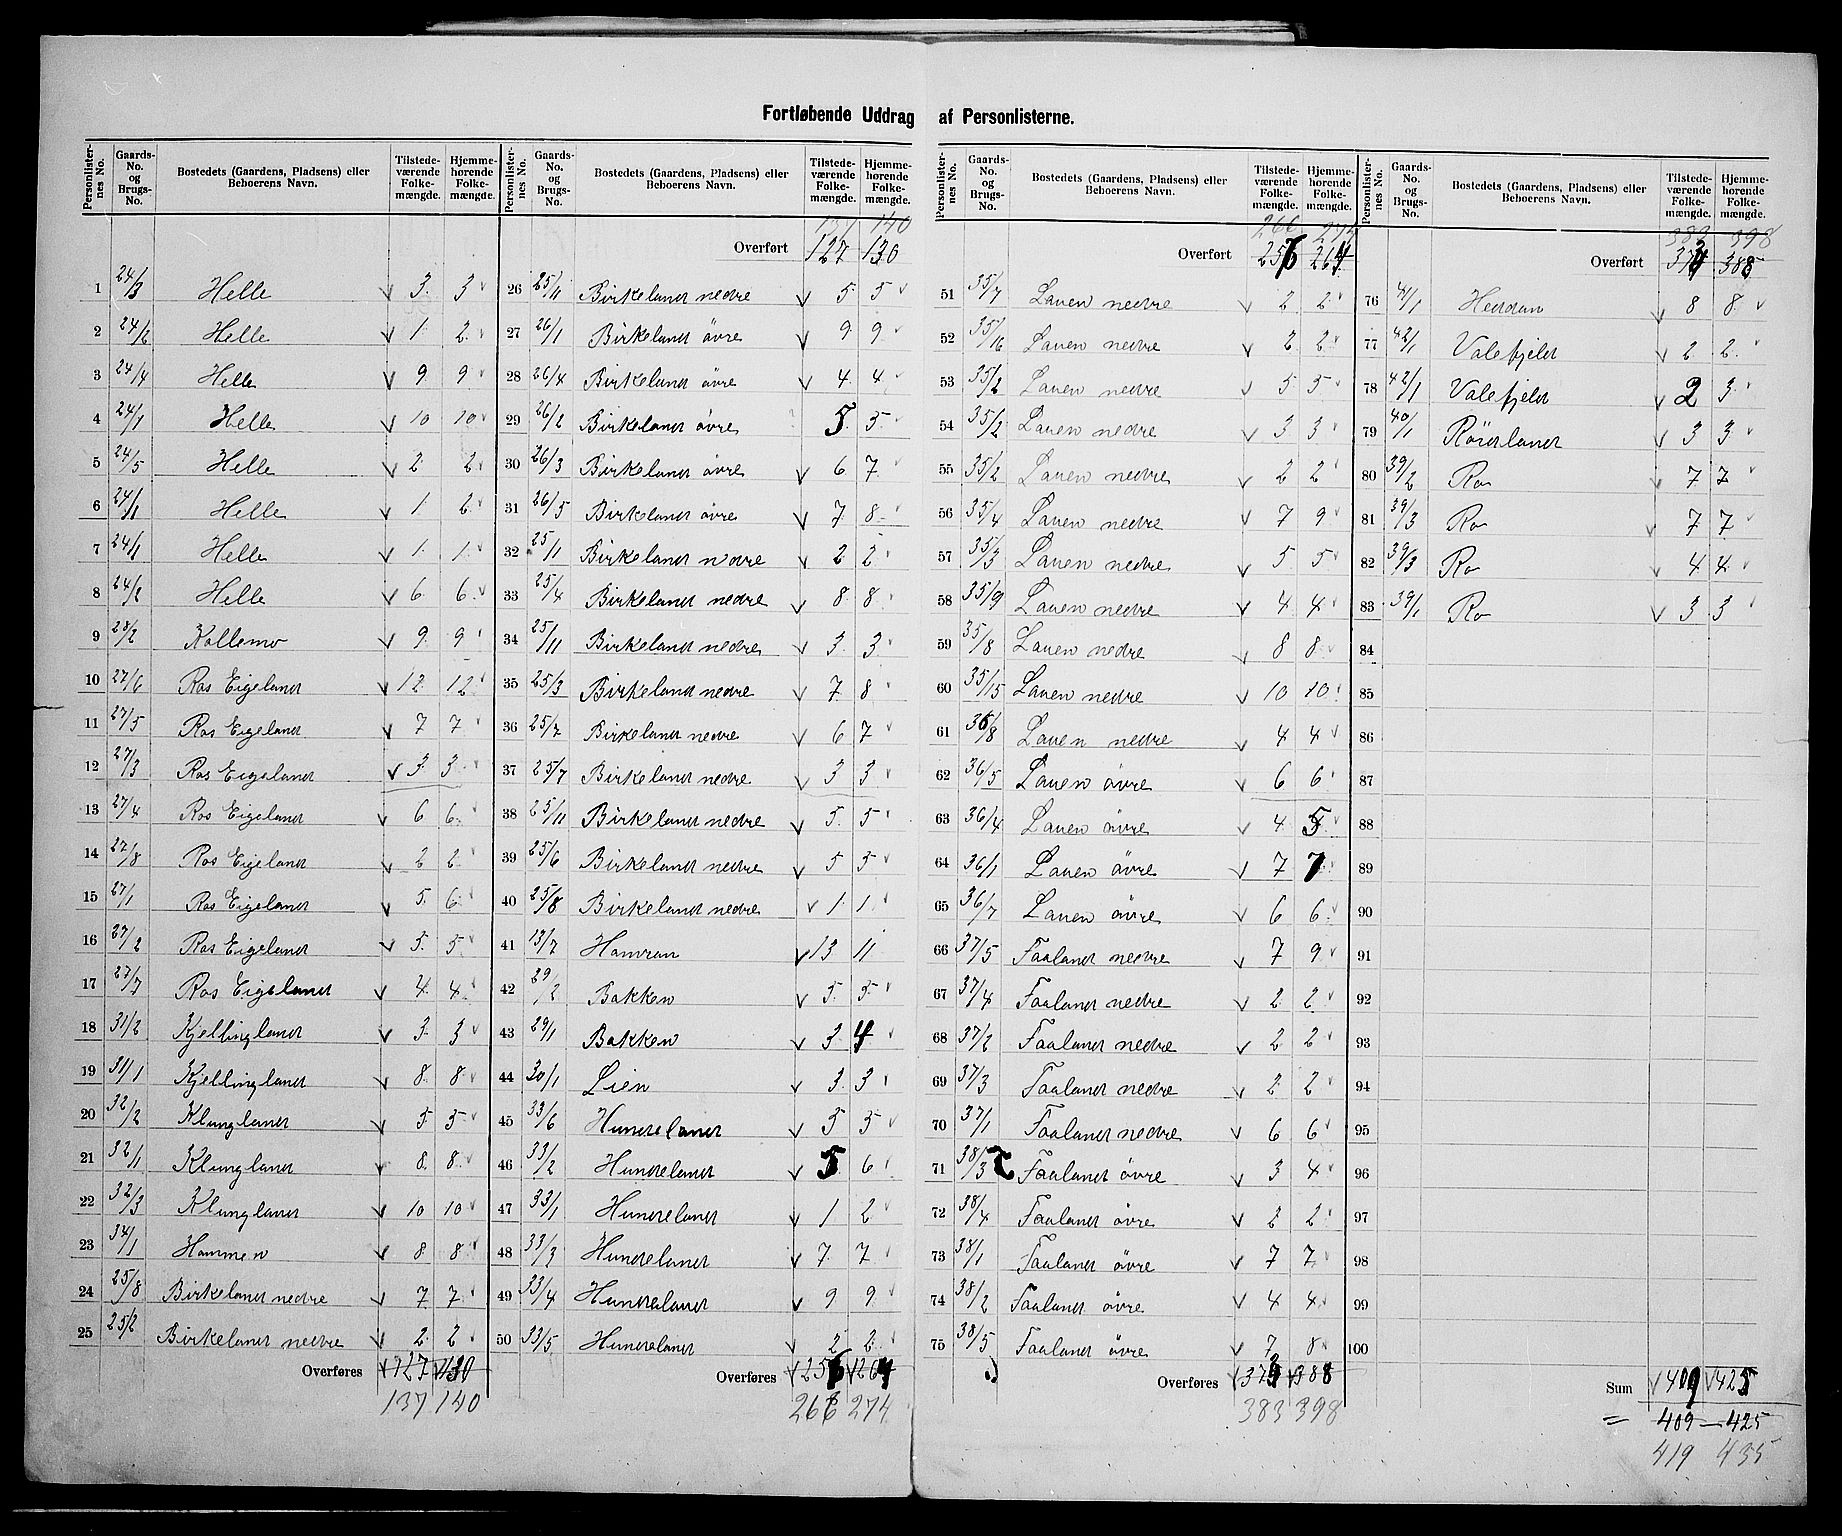 Fortløbende Uddrag af Personlisterne.
Personlisternes No. | Gaards-No. og Brugs-No. | Bostedets (Gaardens, Pladsens) eller Beboerens Navn. | Tilstedeværende Folkemængde. | Hjemmehørende Folkemængde.
1 24/3 Helle v 3 3 v
2 24/6 Helle v 1 2 v
3 24/4 Helle v 9 9 v
4 24/1 Helle v 10 10 v
5 24/5 Helle v 2 2 v
6 24/1 Helle v 1 2 v
7 24/1 Helle v 1 1 v
8 24/2 Helle v 6 6 v
9 28/2 Kallemo v 9 9 v
10 27/6 Ros Eigeland v 12 12 v
11 27/5 Ros Eigeland v 7 7 v
12 27/3 Ros Eigeland v 3 3 v
13 27/4 Ros Eigeland v 6 6 v
14 27/8 Ros Eigeland v 2 2 v
15 27/1 Ros Eigeland v 5 6 v
16 27/2 Ros Eigeland v 5 5 v
17 27/7 Ros Eigeland v 4 4 v
18 31/2 Kjellingland v 3 3 v
19 31/1 Kjellingland v 8 8 v
20 32/2 Klungland v 5 5 v
21 32/1 Klungland v 8 8 v
22 32/3 Klungland v 10 10 v
23 34/1 Hammen v 8 8 v
24 25/8 Birkeland nedre v 7 7 v
25 25/2 Birkeland nedre v 2 2 v
Overføres v 127 v 130
137 140
Personlisternes No. | Gaards-No. og Brugs-No. | Bostedets (Gaardens, Pladsens) eller Beboerens Navn. | Tilstedeværende Folkemængde. | Hjemmehørende Folkemængde.
137 140
Overført 127 130
26 25/11 Birkeland nedre v 5 5 v
27 26/1 Birkeland övre v 9 9 v
28 26/4 Birkeland övre v 4 4 v
29 26/2 Birkeland övre 5 5 v
30 26/3 Birkeland övre v 6 7 v
31 26/5 Birkeland övre v 7 8 v
32 25/1 Birkeland nedre v 2 2 v
33 25/4 Birkeland nedre v 8 8 v
34 25/11 Birkeland nedre v 3 3 v
35 25/3 Birkeland nedre v 7 8 v
36 25/7 Birkeland nedre v 6 7 v
37 25/7 Birkeland nedre v 3 3 v
38 25/11 Birkeland nedre v 5 5 v
39 25/6 Birkeland nedre v 5 5 v
40 25/8 Birkeland nedre v 1 1 v
41 13/7 Hamran v 13 11
42 29/2 Bakken v 5 5 v
43 29/1 Bakken v 3 4 v
44 30/1 Lien v 3 3 v
45 33/6 Hundeland v 5 5 v
46 33/2 Hundeland v 5 6 v
47 33/1 Hundeland v 1 2 v
48 33/3 Hundeland v 7 7 v
49 33/4 Hundeland v 9 9 v
50 33/5 Hundeland v 2 2 v
Overføres v 256 v 264
266 274
Personlisternes No. | Gaards-No. og Brugs-No. | Bostedets (Gaardens, Pladsens) eller Beboerens Navn. | Tilstedeværende Folkemængde. | Hjemmehørende Folkemængde.
266 274
Overført 256 264
51 35/7 Lauen nedre v 2 2 v
52 35/16 Lauen nedre v 2 2 v
53 35/2 Lauen nedre v 5 5 v
54 35/2 Lauen nedre v 3 3 v
55 35/2 Lauen nedre v 2 2 v
56 35/4 Lauen nedre v 7 9 v
57 35/3 Lauen nedre v 5 5 v
58 35/9 Lauen nedre v 4 4 v
59 35/8 Lauen nedre v 8 8 v
60 35/15 Lauen nedre v 10 10 v
61 36/8 Lauen nedre v 4 4 v
62 36/5 Lauen övre v 6 6 v
63 36/4 Lauen övre v 4 5
64 36/1 Lauen övre v 7 7 v
65 36/7 Lauen övre v 6 6 v
66 37/5 Faaland nedre v 7 9 v
67 37/4 Faaland nedre v 2 2 v
68 37/2 Faaland nedre v 2 2 v
69 37/3 Faaland nedre v 2 2 v
70 37/1 Faaland nedre v 6 6 v
71 38/3 Faaland övre v 3 4 v
72 38/4 Faaland övre v 2 2 v
73 38/1 Faaland övre v 7 7 v
74 38/2 Faaland övre v 4 4 v
75 38/5 Faaland övre v 7 8 v
Overføres v 373 v 388
383 398
Personlisternes No. | Gaards-No. og Brugs-No. | Bostedets (Gaardens, Pladsens) eller Beboerens Navn. | Tilstedeværende Folkemængde. | Hjemmehørende Folkemængde.
383 398
Overført 373 388
76 41/1 Heddan v 8 8 v
77 42/1 Valefjeld v 2 2 v
78 42/1 Valefjeld v 2 3 v
79 40/1 Röirland v 3 3 v
80 39/2 Ro v 7 7 v
81 39/3 Ro v 7 7 v
82 39/3 Ro v 4 4 v
83 39/1 Ro v 3 3 v
84
85
86
87
88
89
90
91
92
93
94
95
96
97
98
99
100
Sum v 409 v 425
= 409 — 425
419 435